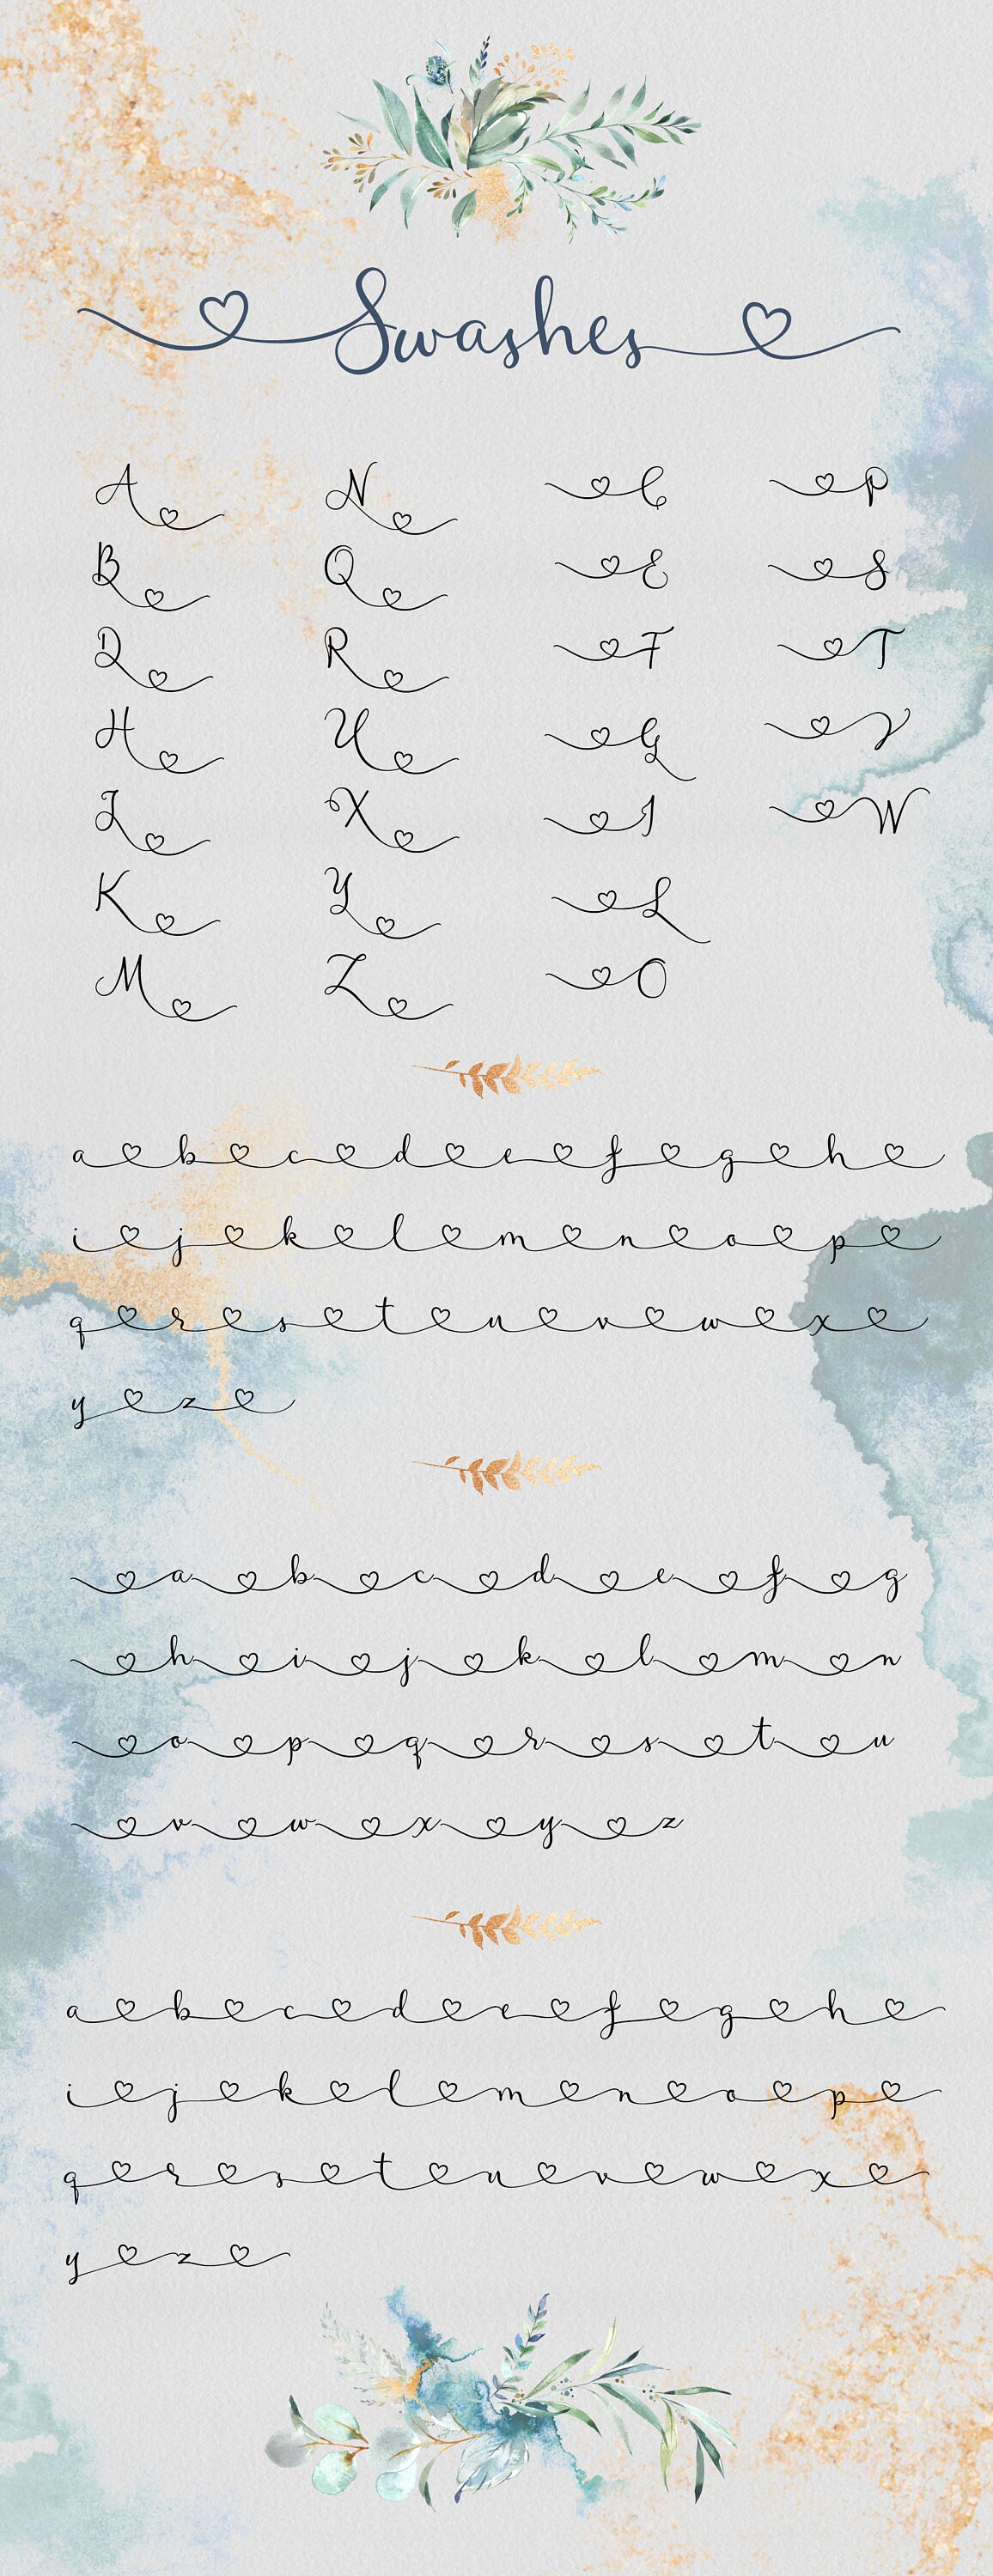 Swashes
A N C P
B Q E S
D R F T
H U G V
J X I W
K Y L
M Z O
a b c d e f g h
i j k l m n o p
q r s t u v w x
y z
a b c d e f g
h i j k l m n
o p q r s t u
v w x y z
a b c d e f g h
i j k l m n o p
q r s t u v w x
y z